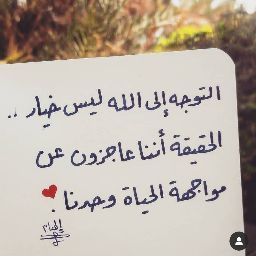 التوجه إلى الله ليس خيار ..
الحقيقة أننا عاجزون عن
مواجهة الحياة وحدنا .
إلهام